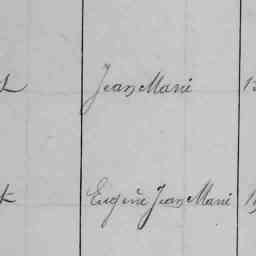 Jean Marie
Eugène Jean Marie